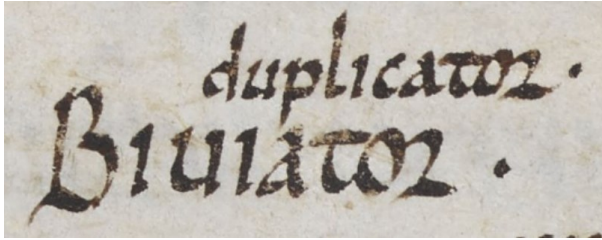 duplicator.
Biuiator.